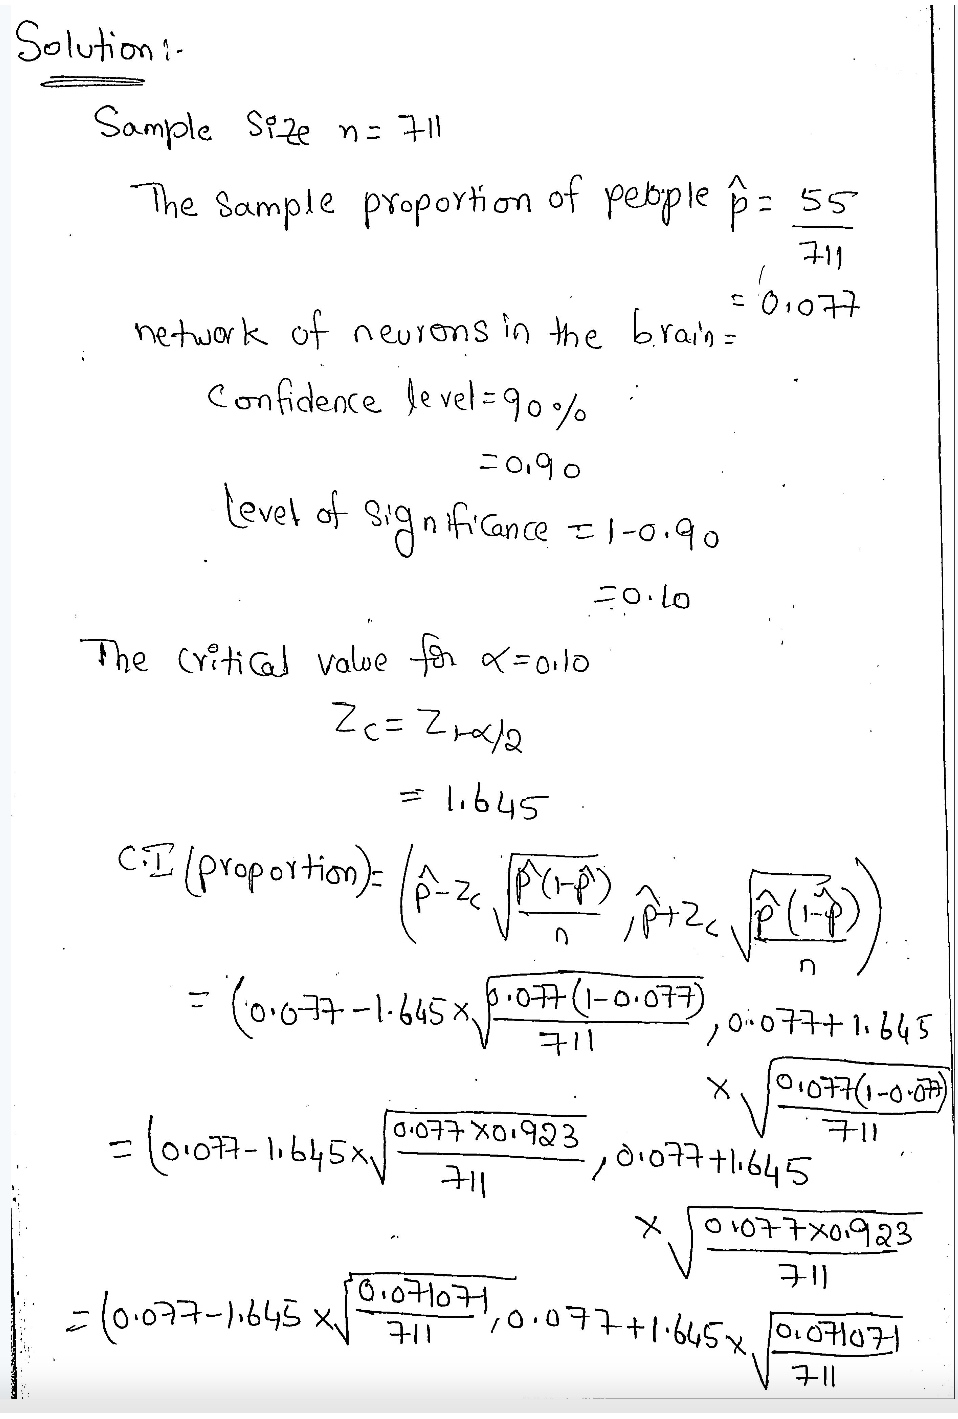 Solution:-
Sample Size n = 711
The Sample proportion of people p̂ = 55/711
= 0.077
network of neurons in the brain =
Confidence level = 90%
= 0.90
level of significance = 1-0.90
= 0.10
The critical value for α = 0.10
Zc = Z1-α/2
= 1.645
C.I (proportion) = (p̂ - Zc √(p̂(1-p̂)/n), p̂ + Zc √(p̂(1-p̂)/n))
= (0.077 - 1.645 × √(0.077(1-0.077)/711), 0.077 + 1.645
× √(0.077(1-0.077)/711)
= (0.077 - 1.645 × √(0.077 × 0.923/711), 0.077 + 1.645
× √(0.077 × 0.923/711)
= (0.077 - 1.645 × √(0.071071/711), 0.077 + 1.645 × √(0.071071/711)